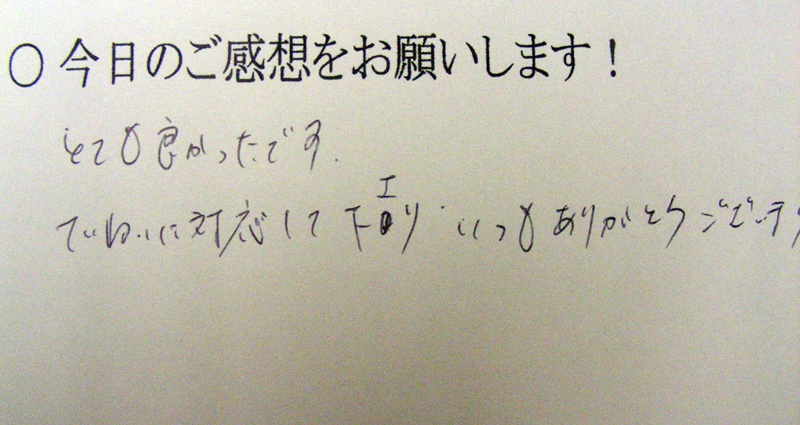 ○ 今日のご感想をお願いします！
とても良かったです.
ていねいに対応して下さり いつもありがとうございます